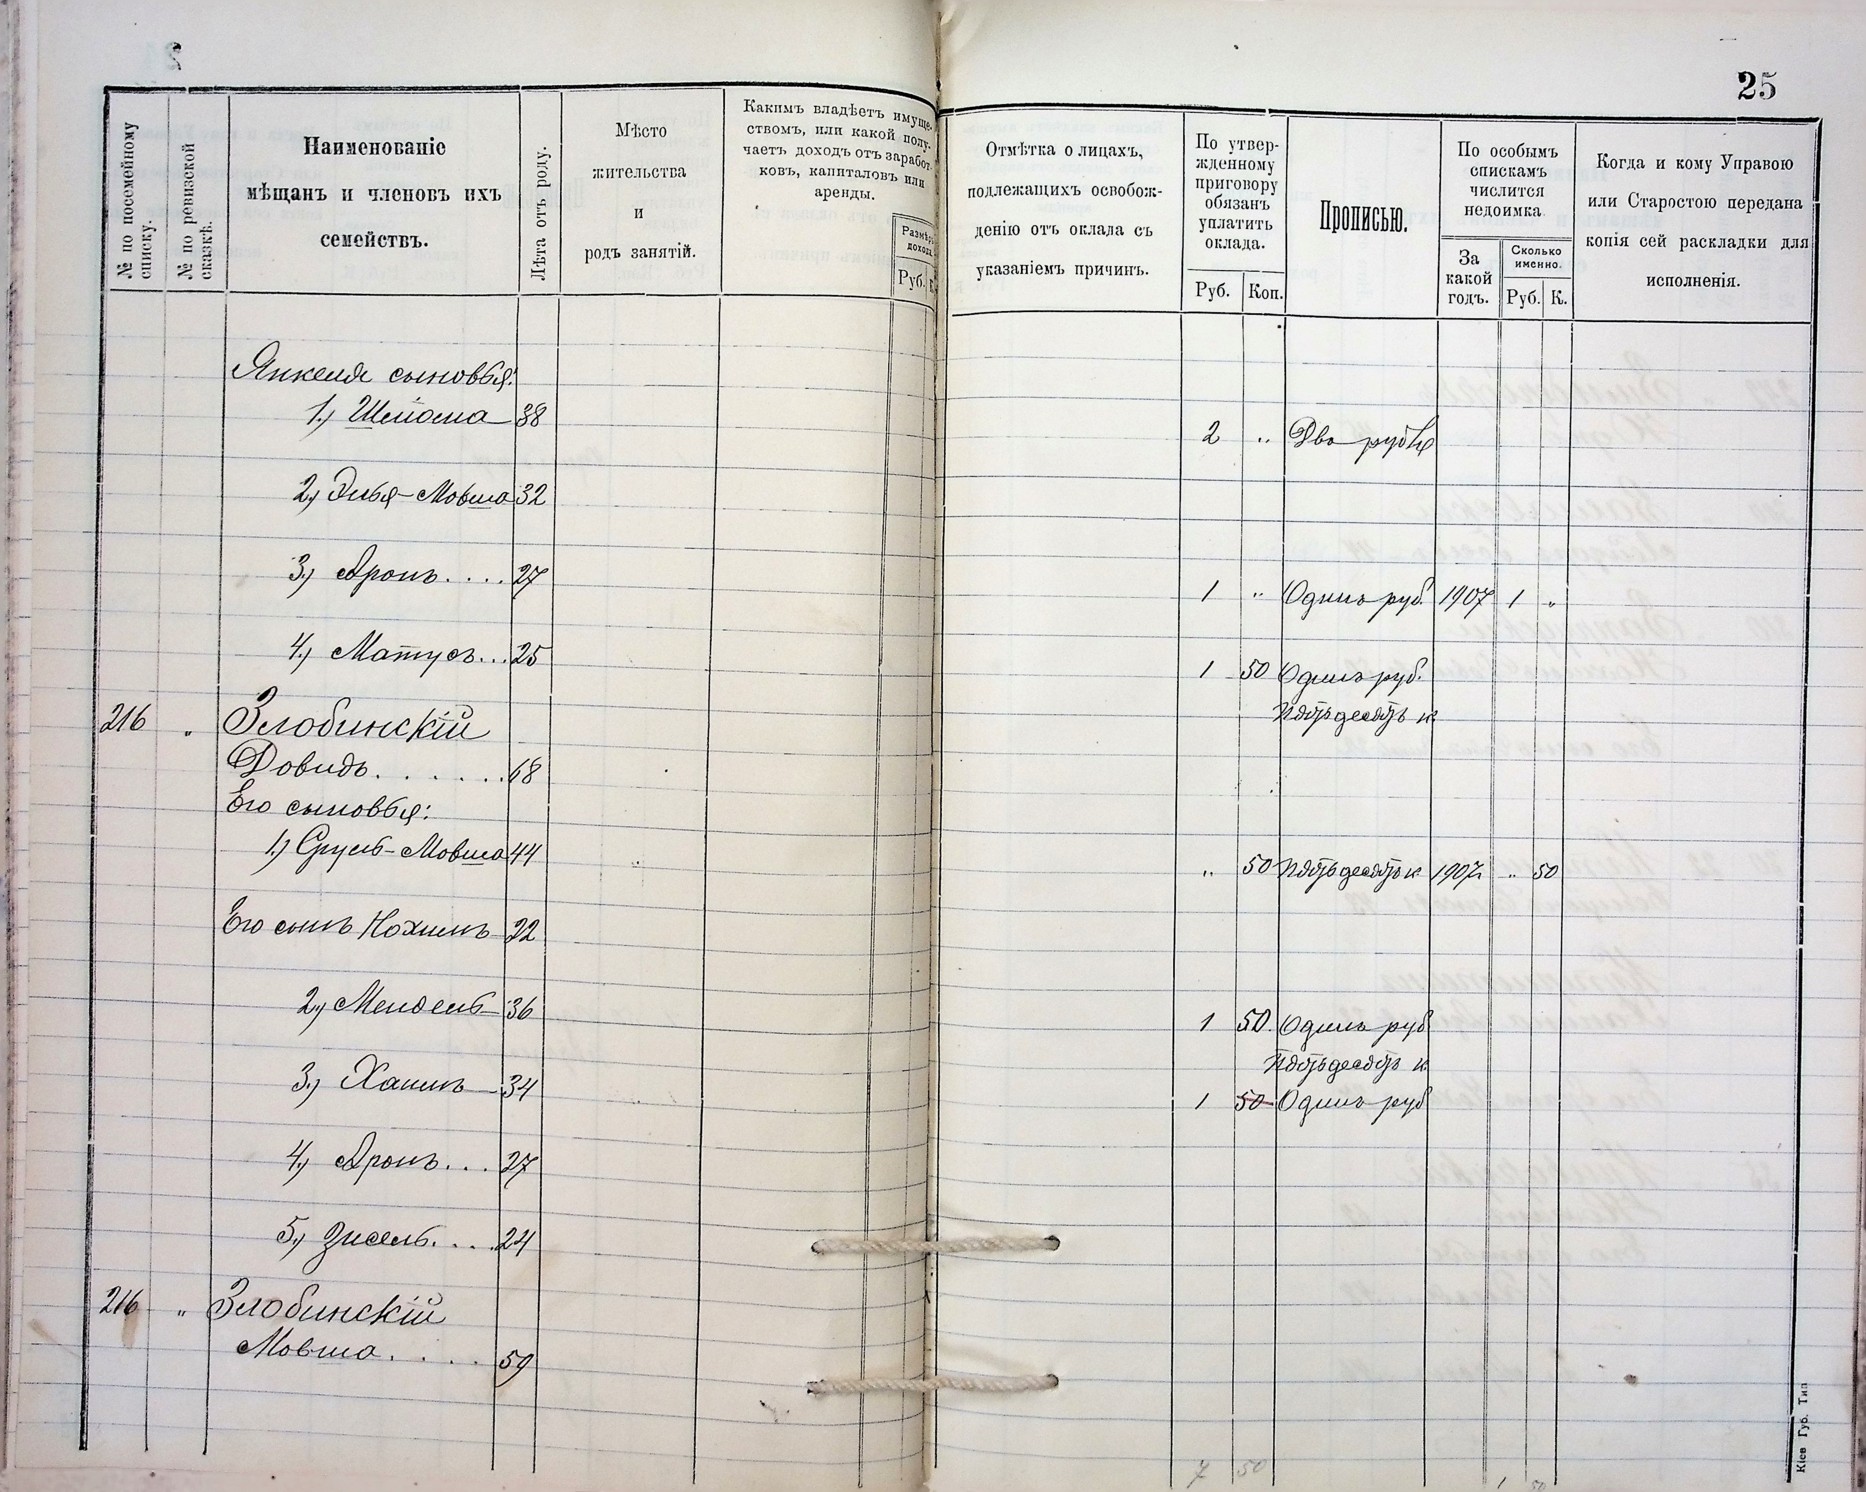 25
№ по посемейному списку.
№ по ревизской сказкѣ.
Наименованіе
мѣщанъ и членовъ ихъ
семействъ.
Лѣта отъ роду.
Мѣсто
жительства
и
родъ занятій.
Какимъ владѣетъ имуще-
ствомъ, или какой полу-
чаетъ доходъ отъ заработ-
ковъ, капиталовъ или
аренды.
Размѣръ
дохода.
Руб. К.
Отмѣтка о лицахъ,
подлежащихъ освобож-
денію отъ оклада съ
указаніемъ причинъ.
По утвер-
жденному
приговору
обязанъ
уплатить
оклада.
Руб. Коп.
Прописью.
По особымъ
спискамъ
числится
недоимка.
За
какой
годъ.
Сколько
именно.
Руб. К.
Когда и кому Управою
или Старостою передана
копія сей раскладки для
исполненія.
Янкеля сыновья:
1.) Шлиома 38 2 " Два рубля
2.) Элья-Мовша 32
3.) Аронъ.... 27 1 " Одинъ руб. 1907 1 "
4.) Матусъ... 25 1 50 Одинъ руб.
Пятьдесятъ к
216 " Злобинскій
Довидъ...... 68
Его сыновья:
1.) Сруль-Мовша 44 " 50 Пятьдесятъ к 1907 " 50
Его сынъ Нохимъ 22
2.) Мендель 36 1 50 Одинъ руб
Пятьдесятъ к
3.) Хаимъ 34 1 50 Одинъ руб
4.) Аронъ... 27
5.) Зисель.... 24
216 " Злобинскій
Мовша..... 59
7 50 1 50
Кіев Губ. Тип